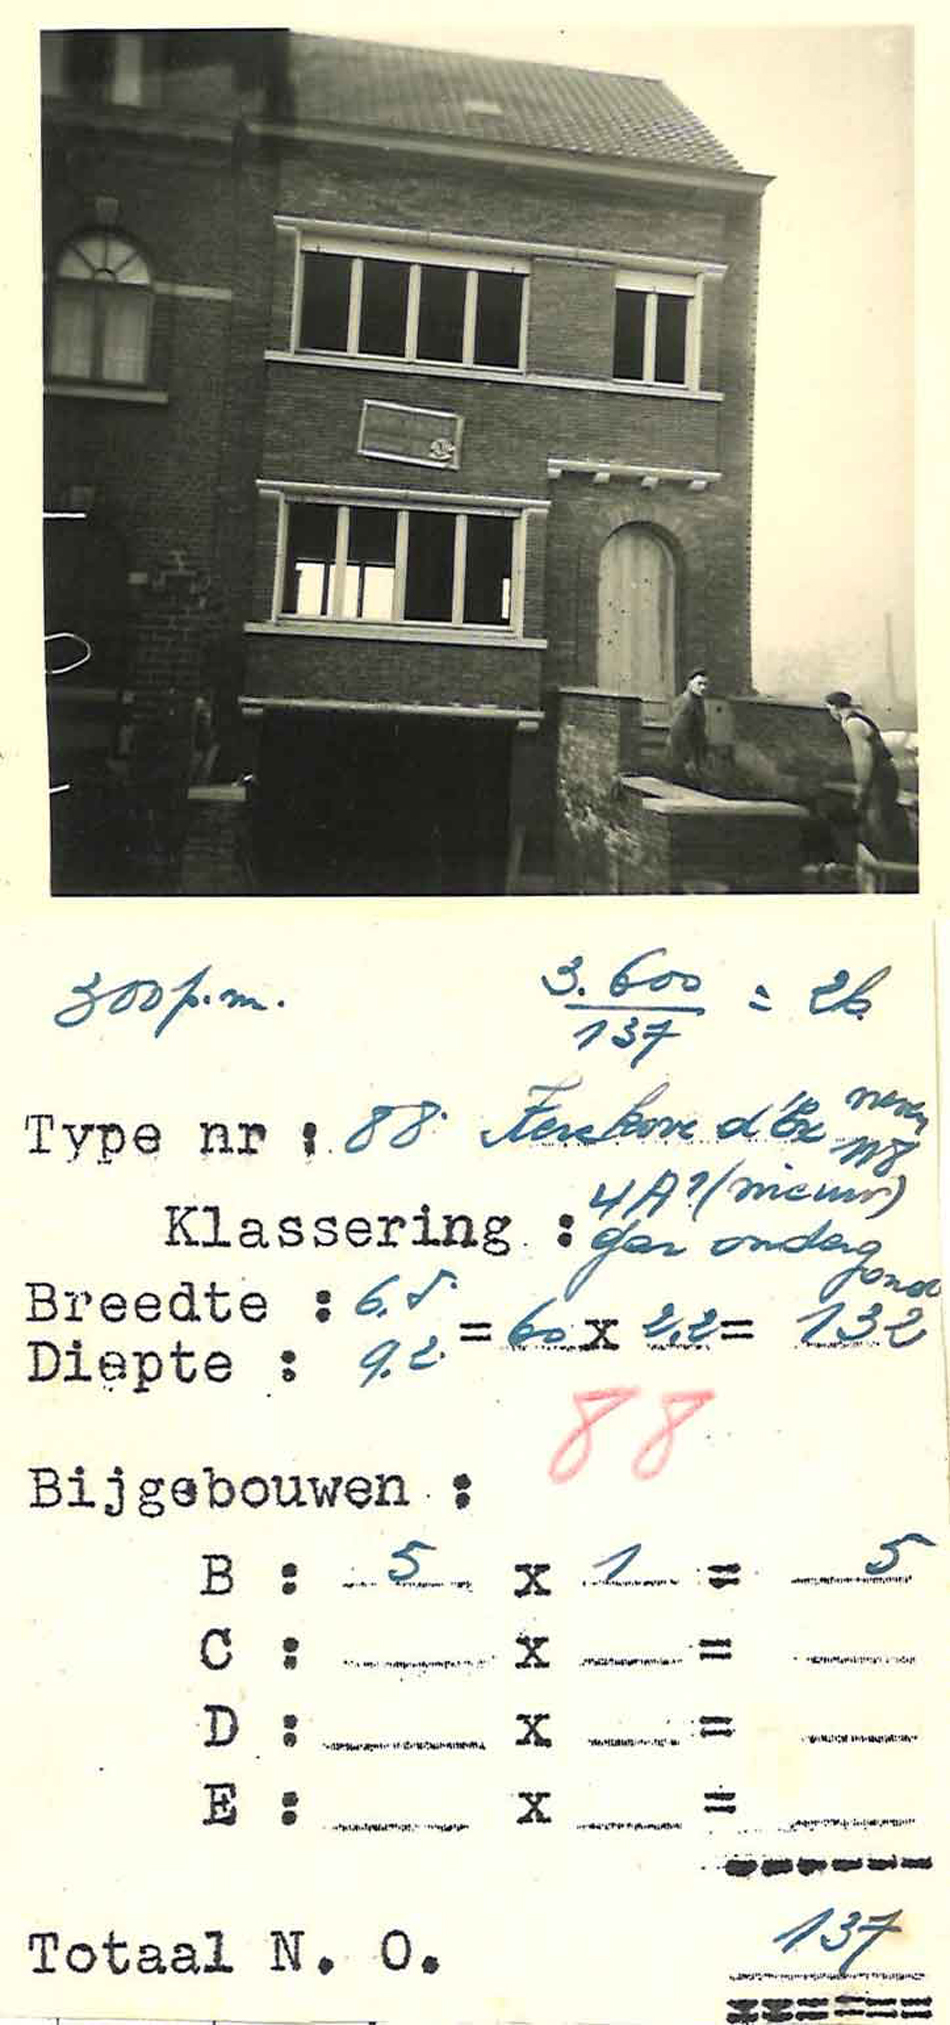 300 p.m.
3.600 / 137 = 26
Type nr : 88 d'Ex neven n° 8
Klassering : 4A? (nieuw)
gar onderg
Breedte : 6.5
Diepte : 9.2 = 60 x 2,2 = 132
88
Bijgebouwen :
B : 5 x 1 = 5
C : x =
D : x =
E : x =
Totaal N. O. 137